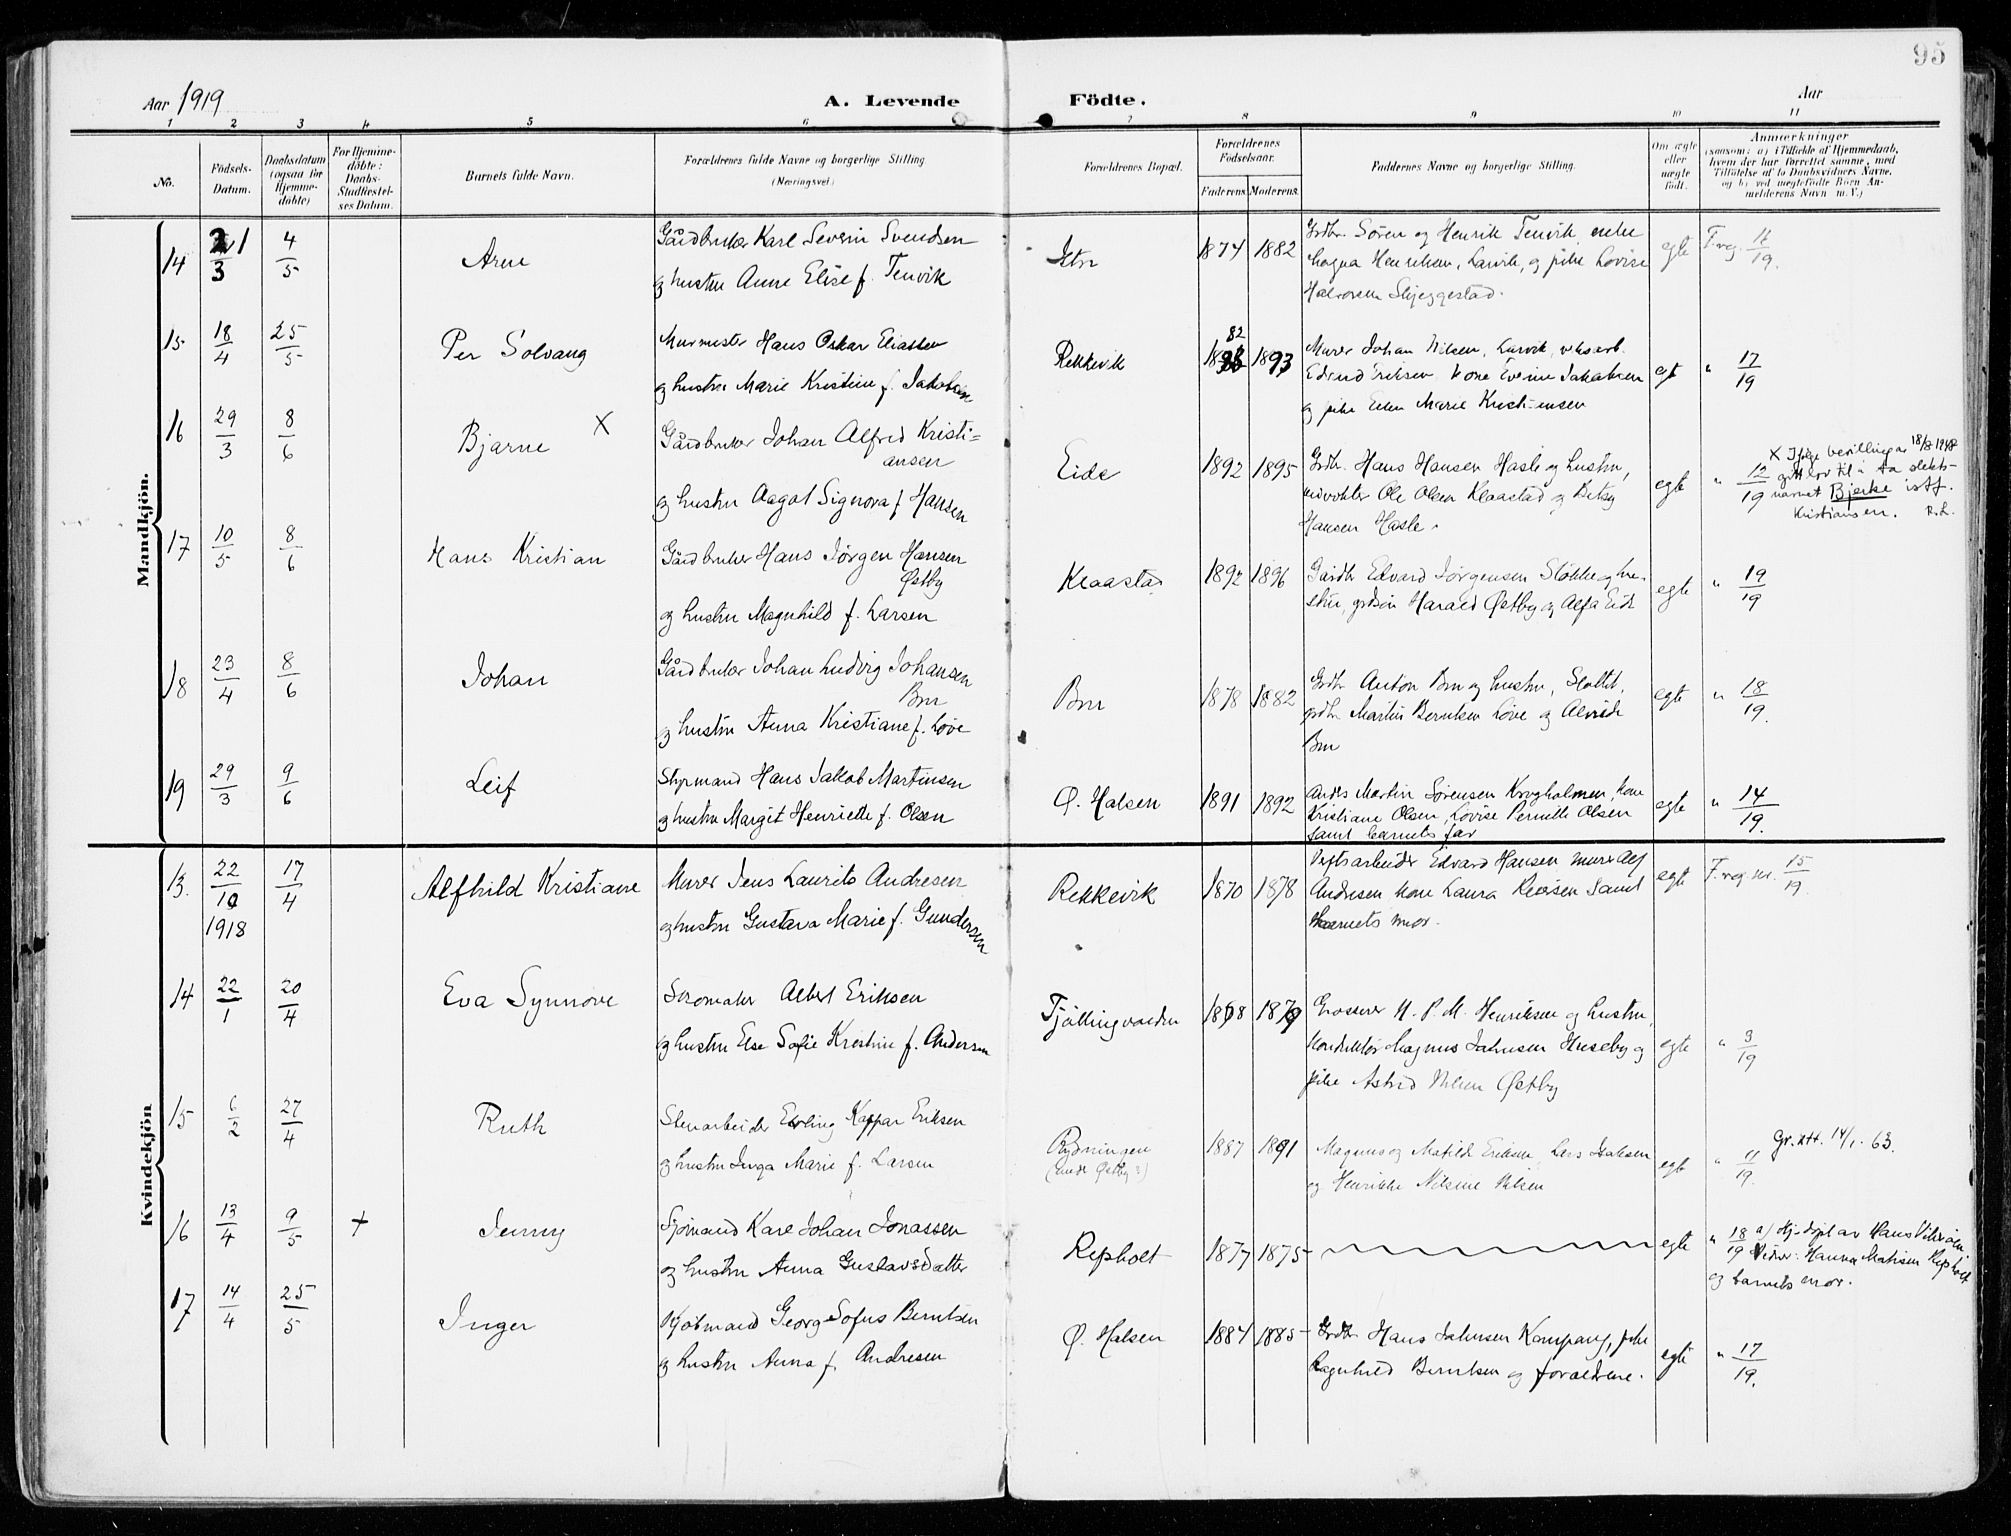 95
Aar 1919
A. Levende Födte.
Aar
1 2 3 4 5 6 7 8 9 10 11
No.
Födsels-
Datum.
Daabsdatum
(ogsaa for
Hjemme-
döbte)
For Hjemme-
döbte:
Daabs-
Stadfæstel-
ses Datum.
Barnets fulde Navn.
Forældrenes fulde Navne og borgerlige Stilling
(Næringsvei)
Forældrenes Bopæl.
Forældrenes
Födselsaar.
Faderens. Moderens.
Faddernes Navne og borgerlige Stilling.
Om ægte
eller
uægte
födt.
Anmærkninger
(saasom: a) i Tilfælde af Hjemmedaab,
hvem der har forrettet samme, med
Tilföielse af to Daabsvidners Navne,
og b) ved uægtefödte Börn An-
melderens Navn m. V.)
Mandkjön.
14 21/3 4/5 Arne
Gårdbruker Karl Severin Svendsen
og hustru Anne Elise f. Tenvik
1874 1882
Grdbr. Sören og Henrik Tenvik, enke
Magna Henriksen, Larvik, og pike Lovise
Halvorsen Skjeggestad.
egte F.reg. 16/19.
15 18/4 25/5 Per Solvang
Murmester Hans Oskar Eliassen
og hustru Marie Kristine f. Jakobsen
Rekkevik 82 1893
Murer Johan Nilsen, Larvik, verksarb.
Edvard Eriksen, kone Evenine Jakobsen
og pike Ellen Marie Kristiansen
egt " 17/19
16 29/3 8/6 Bjarne X
Gårdbruker Johan Alfred Kristi=
ansen
og hustru Aagot Signora f. Hansen
Eide 1892 1895
Grdbr. Hans Hansen Hasle og hustru,
Ole Olsen Klaastad og Betsy
Hansen Hasle.
egte " 12/19
X Ifølge bevilling av 18/8 1948
gitt lov til å ta slekts-
navnet Bjerke istf.
Kristiansen. R.L.
17 10/5 8/6 Hans Kristian
Gårdbruker Hans Jørgen Hansen
Østby
og hustru Magnhild f. Larsen
Klaastad 1892 1896
Gårdbr Edvard Jørgensen Sløkke og hu-
stru, grdsøn Harald Østby og Alfa Eide
egte " 19/19
18 23/4 8/6 Johan
Gårdbruker Johan Ludvig Johansen
Bru
og hustru Anna Kristiane f. Løve
Bru 1878 1882
Grdbr Anton Bru og hustru,
grdbr Martin Berntsen Løve og Alvilde
Bru
egte " 18/19.
19 29/3 9/6 Leif
Styrmand Hans Jakob Martinsen
og hustru Margit Henriette f. Olsen
Ø. Halsen 1891 1892
Anders Martin Sørensen Krogholmen, kone
Kristiane Olsen, Lovise Pernille Olsen
samt barnets far
egte " 14/19.
Kvindekjön
13. 22/10 1918 17/4 Alfhild Kristiane
Murer Jens Laurits Andresen
og hustru Gustava Marie f. Gundersen
Rekkevik 1870 1878
Verftsarbeider Edvard Hansen murer Alf
Andresen kone Laura Iversen samt
barnets mor.
egte F.reg. nr. 15/19.
14 22/1 20/4 Eva Synnøve
Skomaker Albert Eriksen
og hustru Else Sofie Kristine f. Andersen
Tjøllingvolden 1868 1879
Grosserer H. P. M. Henriksen og hustru,
konduktør Magnus Jahnsen Huseby og
pike Astrid Nilsen Østby
egte " 3/19
15 6/2 27/4 Ruth
Stenarbeider Erling Kaspar Eriksen
og hustru Inga Marie f. Larsen
Rydningen
(under Østby?)
1887 1891
Magnus og Matilde Eriksen, Lars Isaksen
og Henrikke Nilsine Nilsen
egte " 11/19. Gr. att. 14/1- 63.
16 13/4 9/5 + Jenny
Sjømand Karl Johan Jonassen
og hustru Anna Gustavsdatter
Repholt 1877 1875
egte " 18/19 a/ Hj.døpt av Hans
Vidner: Hanna Mathisen Repholt
og barnets mor.
17 14/4 25/5 Inger
Kjøbmand Georg Sofus Berntsen
og hustru Anna f. Andresen
Ø. Halsen 1884 1885
Grdbr. Hans Jahnsen Kaupang, pike
Ragnhild Berntsen og forældrene.
egte " 17/19.